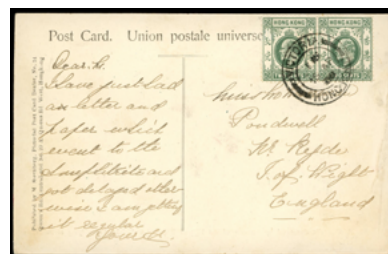 Post Card. Union postale universe
HONG KONG HONG KONG
VICTORIA
HONG
Dear
have just had
a letter and
paper which
went to the
and
got delayed other
wise I am getting
it regular
Miss
Pondwell
Nr Ryde
I. of Wight
England